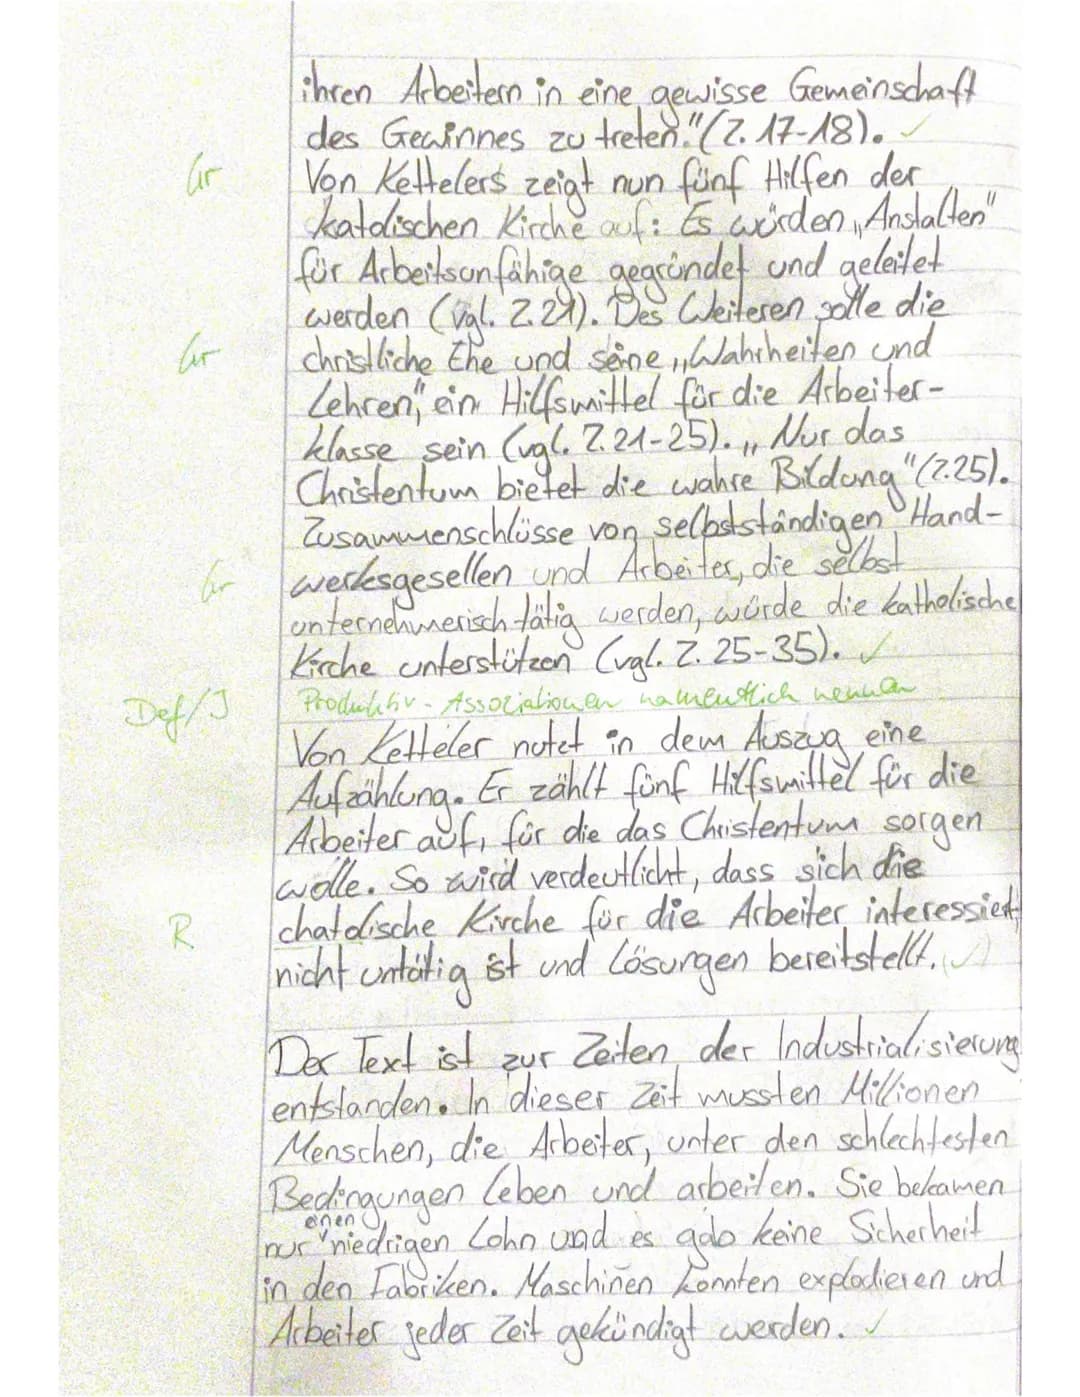 ihren Arbeitern in eine gewisse Gemeinschaft
des Gewinnes zu treten." (Z. 17-18). ✓
Gr Von Kettelers zeigt nun fünf Hilfen der
katolischen Kirche auf: Es würden „Anstalten"
für Arbeitsunfähige gegründet und geleitet
werden (vgl. Z. 21). Des Weiteren solle die
Gr christliche Ehe und seine „Wahrheiten und
Lehren", ein Hilfsmittel für die Arbeiter-
klasse sein (vgl. Z. 21-25). „Nur das
Christentum bietet die wahre Bildung" (Z.25).
Zusammenschlüsse von selbstständigen Hand-
Gr werksgesellen und Arbeiter, die selbst
unternehmerisch tätig werden, würde die katholische
Kirche unterstützen (vgl. Z. 25-35). ✓
Def/I Produktiv-Assoziationen namentlich nennen
Von Ketteler nutzt in dem Auszug eine
Aufzählung. Er zählt fünf Hilfsmittel für die
Arbeiter auf, für die das Christentum sorgen
wolle. So wird verdeutlicht, dass sich die
R chatolische Kirche für die Arbeiter interessiert
nicht untätig ist und Lösungen bereitstellt. (✓)
Der Text ist zur Zeiten der Industrialisierung
entstanden. In dieser Zeit mussten Millionen
Menschen, die Arbeiter, unter den schlechtesten
Bedingungen leben und arbeiten. Sie bekamen
nur einen niedrigen Lohn und es gab keine Sicherheit
in den Fabriken. Maschinen konnten explodieren und
Arbeiter jeder Zeit gekündigt werden. ✓